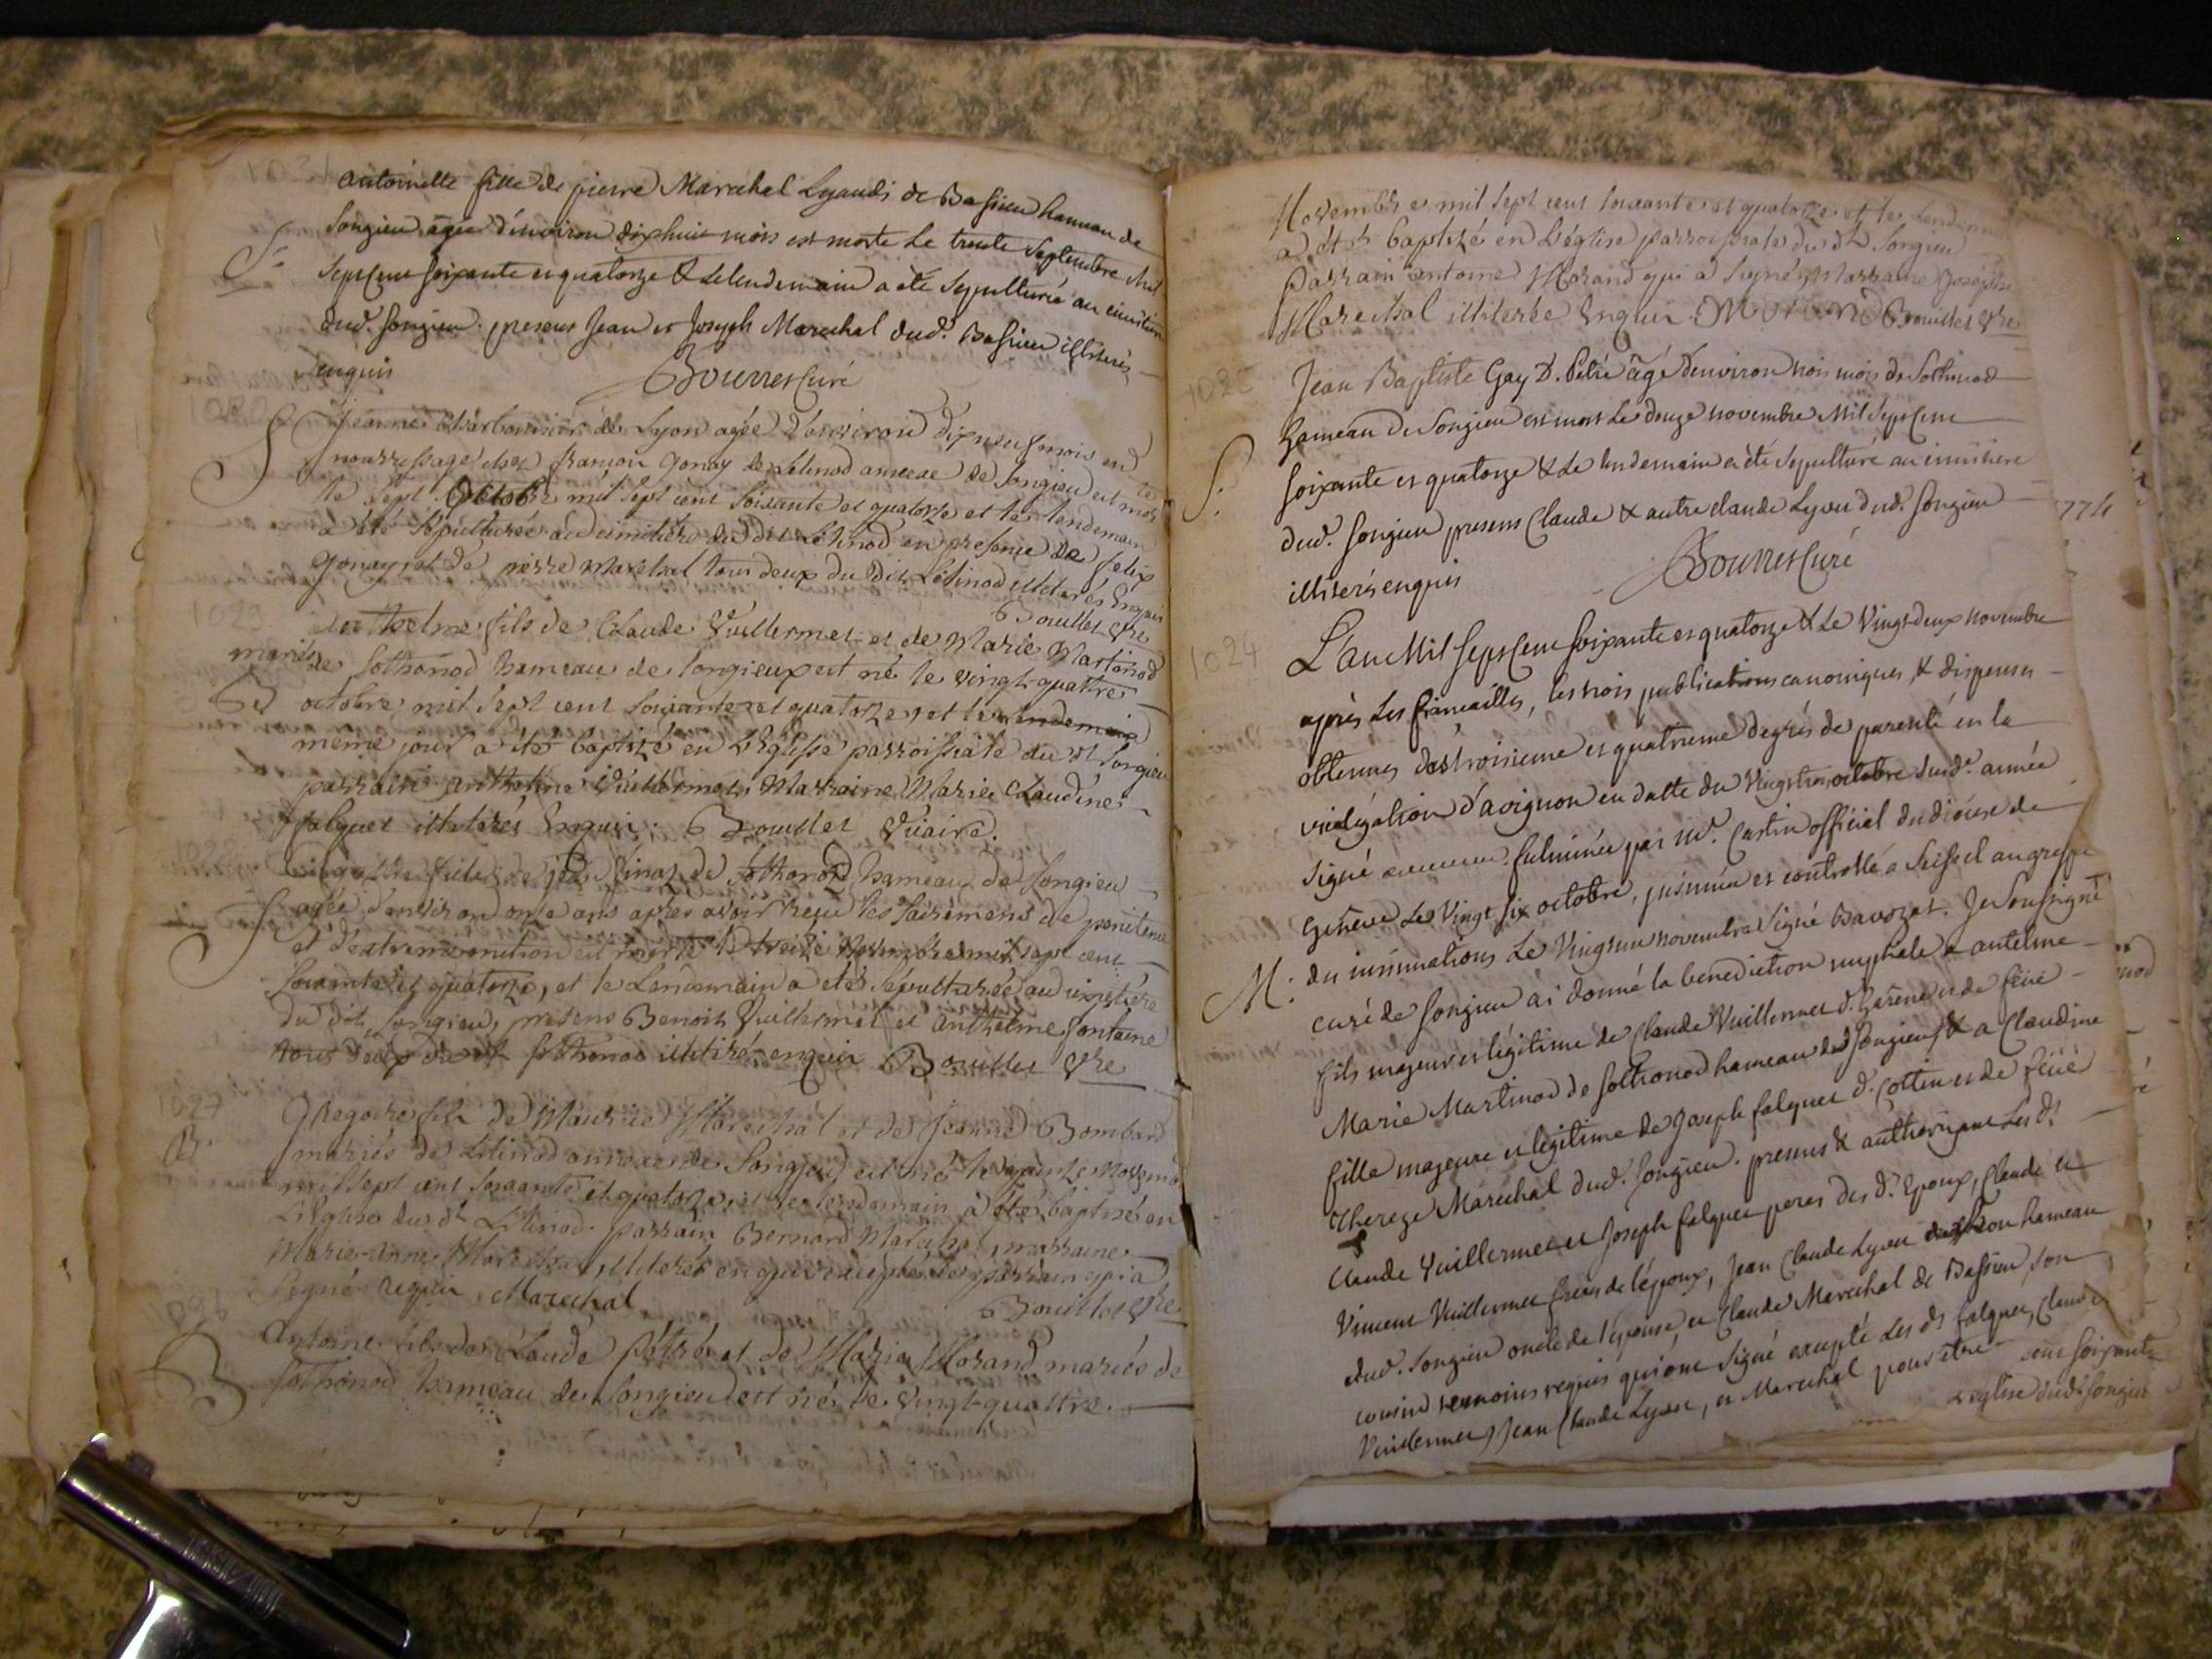 antoinette fille de pierre Marechal Lyaudi de Bassieu hameau de
Songieu agée d'environ dixhuit mois est morte le trente Septembre Mil
S.
Septcent soixante et quatorze & le lendemain a été sepulturée au cimitiere
dud. Songieu. presens Jean et Joseph Marechal dud. Bassieu illiterés
enquis
Bourret Curé
S
Jeanne Charbonnier de Lyon agée d'environ dixneuf mois en
nourrissage chez françois Gonay de Lilinod annexe de Songieu est morte
le sept Octobre mil sept cent soixante et quatorze et le lendemain
a été sépulturée au cimitière du dit Lilinod en presence de felix
gonay, et de pierre Marechal tous deux du dit Lilinod illiterés Enquis
Bouillet Vre
1029
anthelme fils de Claude Vuillermet et de Marie Martinod
mariés de Sothonod hameau de Songieux est né le vingt-quattre
B
octobre mil sept cent soixante et quatorze, et le lendemain
même jour a été baptizé en L'église parroissiale du dt Songieu
parrain anthelme Vuillermet, Marraine Marie Claudine
falquet illiterés Enquis. Bouillet Vicaire.
fille de Pinaz de Sothonod hameau de Songieu
S
agée d'environ onze ans après avoir reçu les sacremens de penitence
et d'extremeonction est morte le treize Novembre mil sept cent
soixante et quatorze, et le Lendemain a été sépulturée au cimitière
du dit Songieu, presens Benoit Vuillermet et Anthelme fontaine
tous deux du dt Sothonod illitirés enquis Bouillet Vre
1027
B.
Gregoire fils de Maurice Marechal et de Jeanne Bombard
mariés de Lilinod annexe de Songieu est né le quinze Novembre
mil sept cent soixante et quatorze, et le lendemain a été baptisé en
L'église du dt Lilinod. parrain Bernard Marechal, marraine
Marie-anne Marechal, illiterés enquis excepté le parrain qui a
signé requis. Marechal
Bouillet Vre
B
Antoine fils de Claude Pétré et de Marie Morand mariés de
Sothonod hameau de Songieu est né le vingt-quattre
Novembre mil sept cent soixante et quatorze et le lendemain
a été baptizé en L'église parroissiale du dt Songieu
Parrain antoine Morand qui a signé, Marraine Josephte
Marechal illiterée Enquis. MORAND Bouillet Vre
1025
Jean Baptiste Gay D. Pétré agé d'environ trois mois de Sothonod
hameau de Songieu est mort Le douze novembre Mil Septcent
S.
soixante et quatorze & Le lendemain a été sepulturé au cimitiere
dud. Songieu presens Claude & autre claude Lyau dud. Songieu
illiterés enquis
Bourret Curé
1024
L'an Mil Septcent soixante et quatorze & Le Vingtdeux novembre
après Les fiancailles, les trois publications canoniques, & dispenses
obtenues des troisieme et quatrieme degrés de parenté en la
vicelégation d'avignon en datte du Vingttrois octobre susd. année
signé fulminée par Md. Castin official du diocese de
Genéve Le Vingt six octobre, insinuée et controllé a Seissel au greffe
M.
des insinuations Le Vingtun novembre Signé Bavozat. Je Soussigné
curé de Songieu ai donné la benediction nuptiale a antelme
fils majeur et légitime de Claude Vuillermet d. Garene et de feüe
Marie Martinod de Sothonod hameau dud Songieu, & a Claudine
fille majeure et legitime de Joseph falquet d. Cottin et de feüe
Thereze Maréchal dud. Songieu. presens & authorizans Les ds
Claude Vuillermet et Joseph falquet peres des d. Epoux, Claude et
Vincent Vuillermet freres de l'époux, Jean Claude Lyau hameau
dud. Songieu oncle de l'epouse, et Claude Marechal de Bassieu, son
cousin temoins requis qui ont signé excepté Les ds falquet, Claude
Vuillermet, Jean Claude Lyau, et Marechal pour être
774
nod
cent soixante
L'eglise dud. Songieu